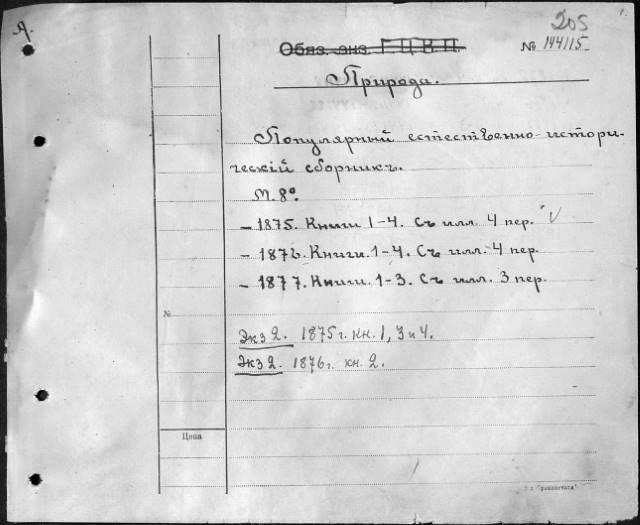 А.
205
Обяз. экз. Г.Ц.В.П.
№ 144115
Природа.
Популярный естественно-истори-
ческій сборникъ.
М. 8º
– 1875. Книги 1–4. Съ илл. 4 пер. V
– 1876. Книги. 1–4. Съ илл. 4 пер.
– 1877. Книги. 1–3. Съ илл. 3 пер.
№
Экз 2. 1875 г. кн. 1, 3 и 4.
Экз 2. 1876 г. кн. 2.
Цена